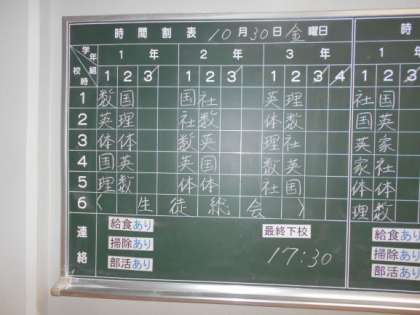 時間割表 10月30日金曜日 時
学年組 1年 2年 3年 1
校時 1 2 3 1 2 3 1 2 3 4 1 2 3
1 数 国 国 社 英 理 社 国
2 英 理 社 数 体 数 国 英
3 体 体 数 英 理 社 英 家
4 国 英 英 国 数 英 家 社
5 理 数 体 体 社 国 体 体
6 〈 生徒総会 〉 理 数
連絡 給食あり 最終下校 給食あり
掃除あり 17:30 掃除あり
部活あり 部活あり